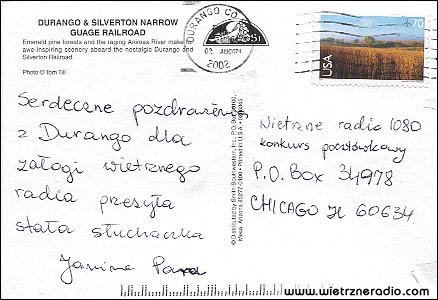 DURANGO & SILVERTON NARROW
GUAGE RAILROAD
Emerald pine forests and the raging Animas River make
awe-inspiring scenery aboard the nostalgic Durango and
Silverton Railroad.
Photo © Tom Till
DURANGO CO
2002
70
USA
Serdeczne pozdrowienia
z Durango dla
załogi wietrznego
radia przesyła
stała słuchaczka
Janina
© Distributed by Smith-Southwestern, Inc., P.O. Box
Mesa, Arizona 85277-0100 • Printed in U.S.A.
Wietrzne radio 1080
konkurs pocztówkowy
P.O. Box 34978
CHICAGO IL 60634
www.wietrzneradio.com